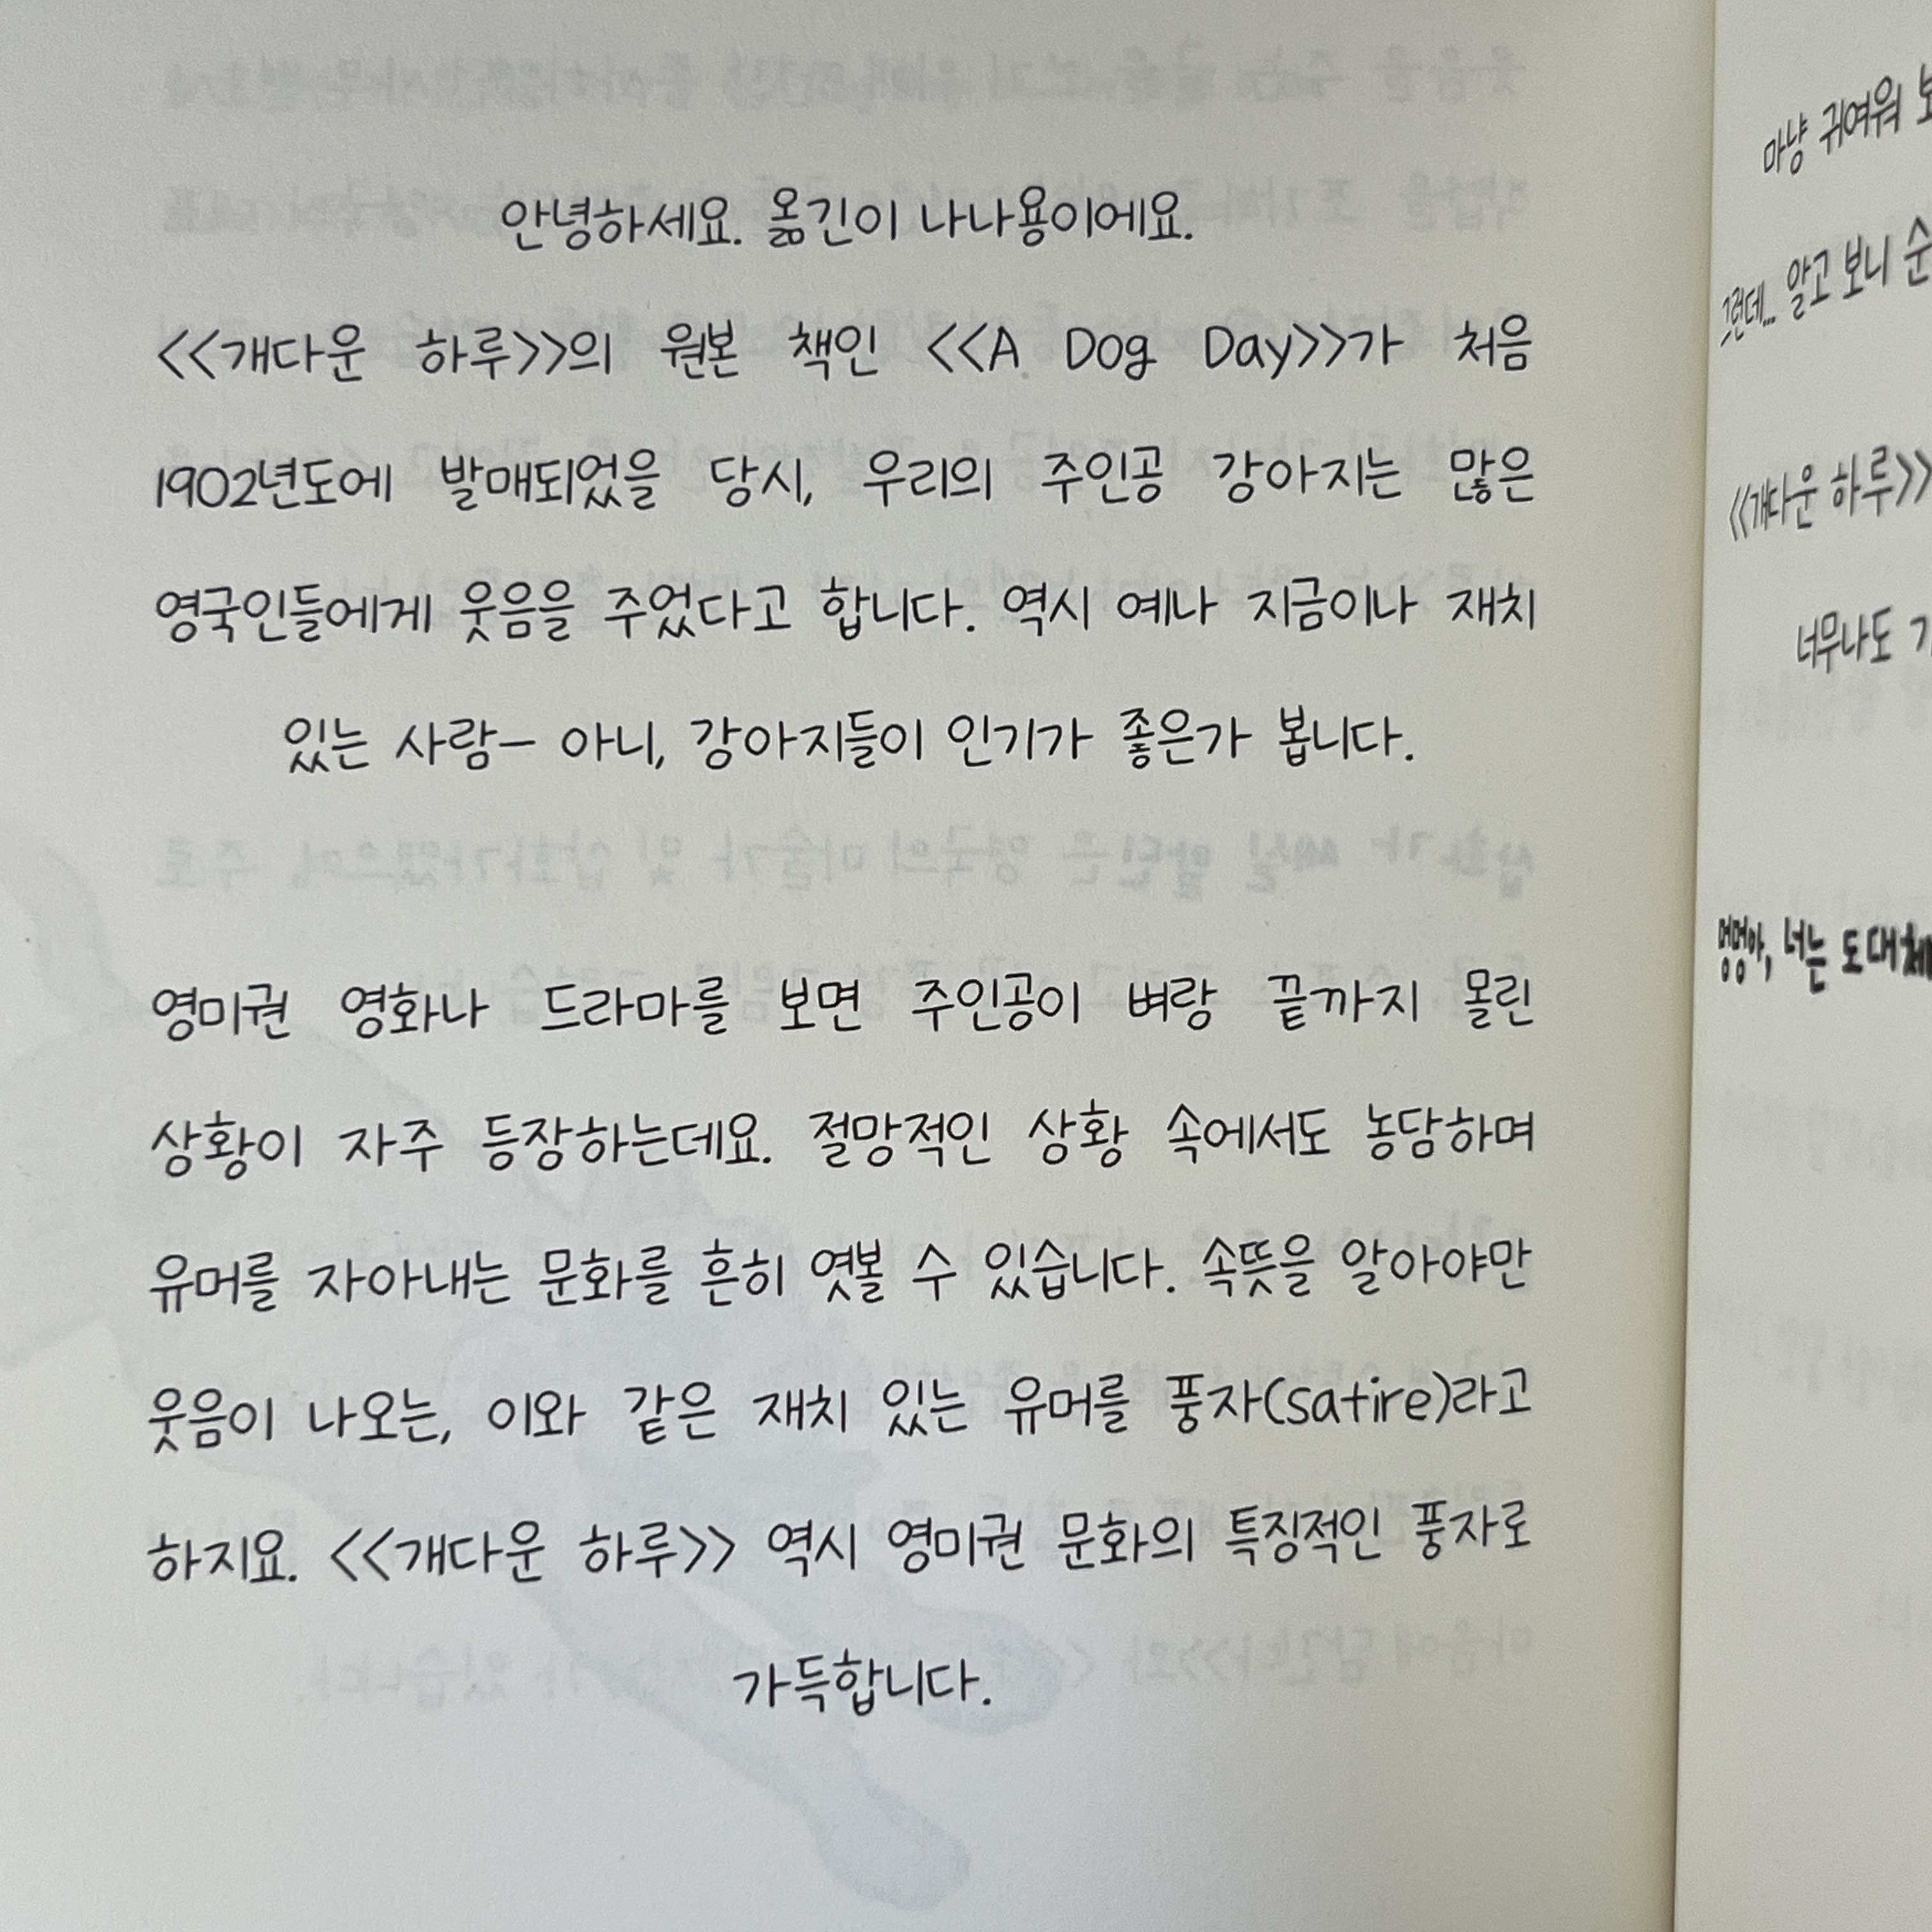 안녕하세요. 옮긴이 나나용이에요.
<<개다운 하루>>의 원본 책인 <<A Dog Day>>가 처음
1902년도에 발매되었을 당시, 우리의 주인공 강아지는 많은
영국인들에게 웃음을 주었다고 합니다. 역시 예나 지금이나 재치
있는 사람- 아니, 강아지들이 인기가 좋은가 봅니다.
영미권 영화나 드라마를 보면 주인공이 벼랑 끝까지 몰린
상황이 자주 등장하는데요. 절망적인 상황 속에서도 농담하며
유머를 자아내는 문화를 흔히 엿볼 수 있습니다. 속뜻을 알아야만
웃음이 나오는, 이와 같은 재치 있는 유머를 풍자(satire)라고
하지요. <<개다운 하루>> 역시 영미권 문화의 특징적인 풍자로
가득합니다.
마냥 귀여워
그런데... 알고 보니
<<개다운 하루>>
너무나도
멍멍아, 너는 도대체